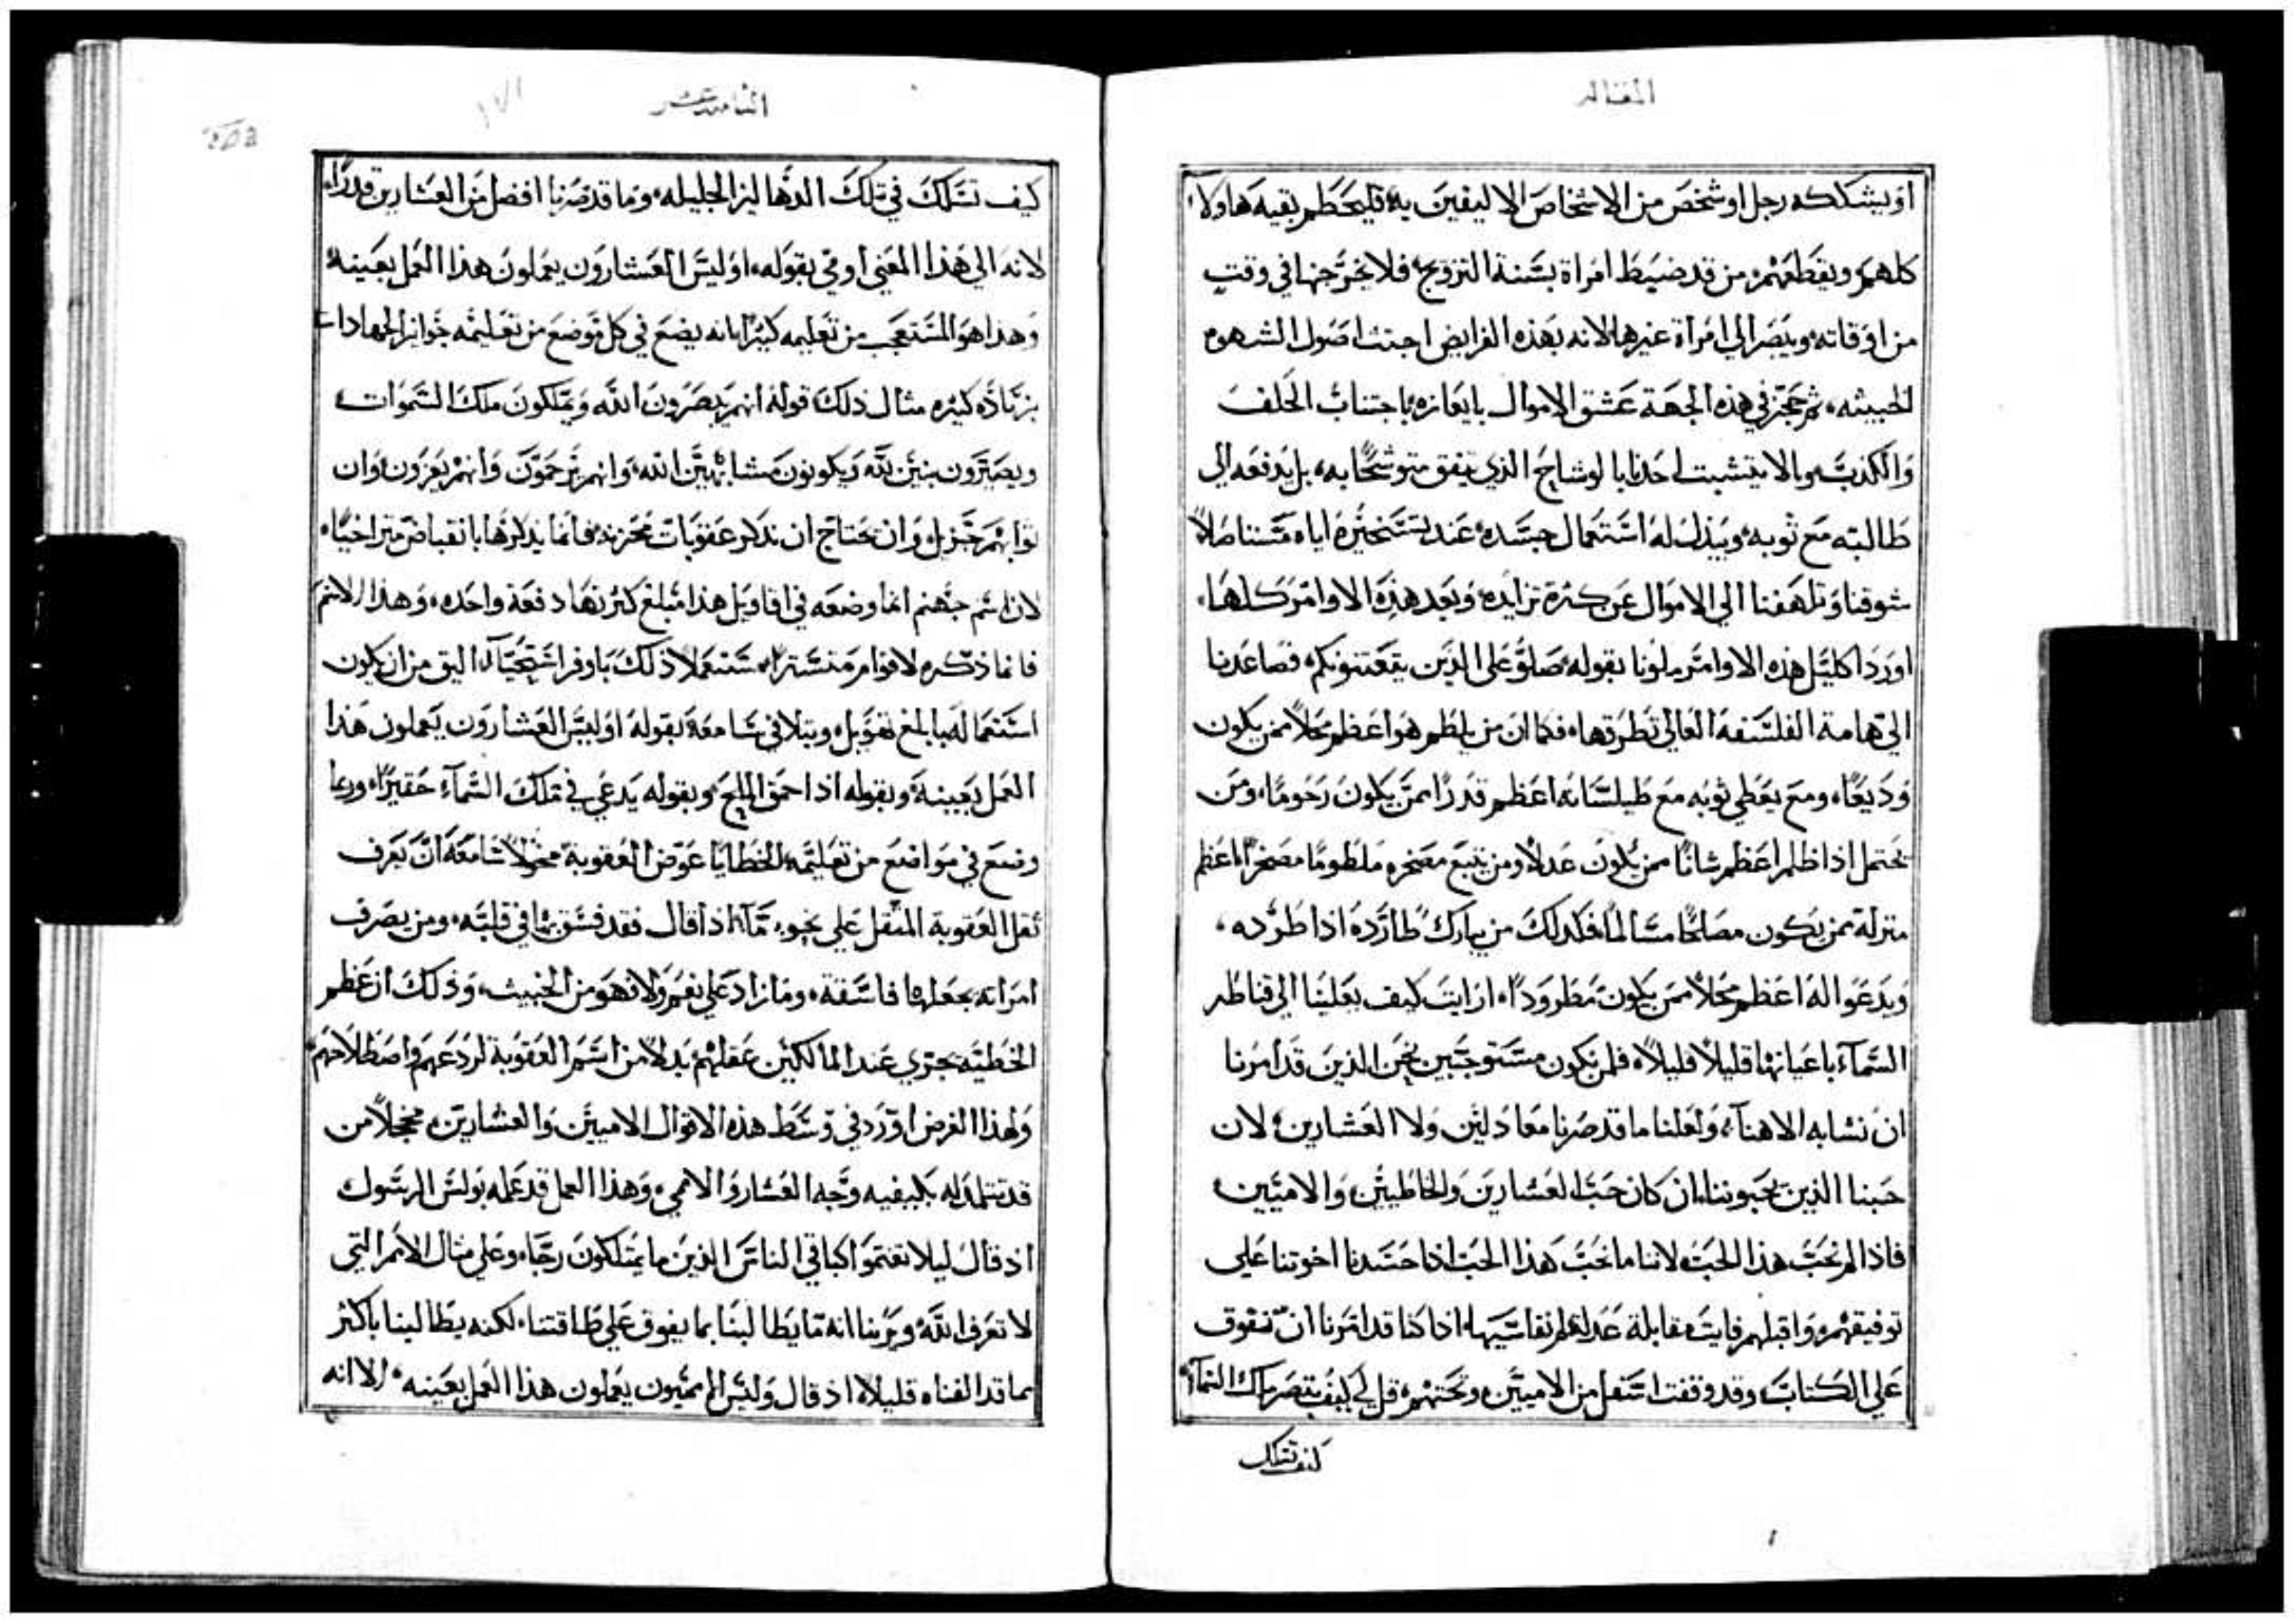 المقاله
او يشككه رجل او شخص من الاشخاص الاليفين به فليحطم بقيه هاولا
كلهم ويقطعهم من قد ضبط امراة بسنة التزويج فلا يخرجنها في وقت
من اوقاته ويبصر الي امراة غيرها لانه بهذه الفرايض اجتث اصول الشهوه
الخبيثه ثم حجز في هذه الجهة عشق الاموال بايعازه باجتناب الحلف
والكذب والا يتشبت احدنا بالوشاح الذي يتفق متوشحًا به بل يدفعه الي
طالبته مع ثوبه ويبذل له استعمال جسده عند تسخيره اياه مستاصلاً
شوقنا وتلهفنا الي الاموال عن كثرة تزايده وبعد هذه الاوامر كلها
اورد اكليل هذه الاوامر ملونا بقوله صلو علي الذين يعنتونكم فصاعدنا
الي هامة الفلسفه العالي تطرقها فكما ان من يلطم هو اعظم محلاً ممن يكون
وديعًا ومع يعطي ثوبه مع طيلسانه اعظم قدرًا ممن يكون رحومًا ومن
يحتمل اذا ظلم اعظم شانًا ممن يكون عدلاً ومن يتبع مسخره ملطومًا مسخرًا اعظم
منزلة ممن يكون مصالحًا مسالمًا فكذلك من يبارك طارده اذا طرده
ويدعوا له اعظم محلاً ممن يكون مطرودًا ارايت كيف يعلينا الي قناطر
السماء باعيانها قليلاً قليلاً فلمن نكون مستوجبين نحن الذين قد امرنا
ان نشابه الاهنا ولعلنا ما قد صرنا معادلين ولا العشارين لان
حبنا الذين يحبوننا ان كان حب العشارين والخاطيين والاميين
فاذا لم نحب هذا الحب لاننا ما نحب هذا الحب اذا حسدنا اخوتنا علي
توفيقهم واقبالهم فايت مقابلة عدله لم نقاسيها اذا كنا قد امرنا ان نفوق
علي الكتاب وقد وقفت اسفل من الاميين وتحتهم قل لي كيف تبصر ملك السماء
كيف تسلك
الثامنه عشر
١٧١
كيف تسلك في تلك الدهاليز الجليله وما قد صرنا افضل من العشارين قدرًا
لانه الي هذا المعني اومي بقوله اوليس العشارون يعملون هذا العمل بعينه
وهذا هو المستعجب من تعليمه كثيرًا بانه يضع في كل موضع من تعليمه جوايز الجهادات
بزيادة كثيره مثال ذلك قوله انهم يبصرون الله ويملكون ملك السموات
ويصيرون بنين لله ويكونون مشابهين الله وانهم يرحمون وانهم يعزون وان
ثوابهم جزيل وان يحتاج ان تذكر عقوبات محزنه فانما يذكرها بانقباض متراخيًا
لان اسم جهنم انما وضعه في اقاويل هذا مبلغ كثرتها دفعة واحده وهذا الاسم
فانما ذكره لاقوام متسترًا مستعملاً ذلك باوفر استحيا اليق من ان يكون
استعماله بابلغ تهويل ويتلافي سامعه بقوله اوليس العشارون يعملون هذا
العمل بعينه وبقوله اذا حمق الملح وبقوله يدعي في ملك السماء حقيرًا وربما
وضع في مواضع من تعليمه الخطايا عوض العقوبة مخولاً سامعه ان يعرف
ثقل العقوبة المثقل علي نحو ما اذا قال فقد فسق بها في قلبه ومن يصرف
امراته يجعلها فاسقة وما زاد علي نعم ولا فهو من الخبيث وذلك ان عظم
الخطيه يجزي عند المالكين عقلهم بدلاً من اسم العقوبة لردعهم واصطلاحهم
ولهذا الغرض اورد في وسط هذه الاقوال الاميين والعشارين مخجلاً من
قد تتلمذ له بكيفيه وجه العشار والامي وهذا العمل قد عمله بولس الرسول
اذ قال ليلا تغتموا كباقي الناس الذين ما يمتلكون رجاء وعلي مثال الامم التي
لا تعرف الله ويرينا انه ما يطالبنا بما يفوق علي طاقتنا لكنه يطالبنا باكثر
مما قد الفناه قليلاً اذ قال وليس الامميون يعملون هذا العمل بعينه الا انه